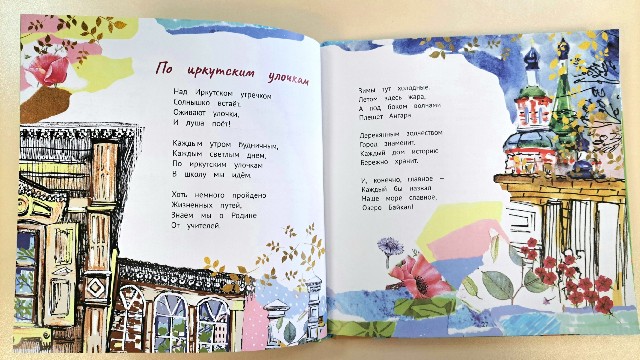 По иркутским улочкам
Над Иркутском утречком
Солнышко встаёт.
Оживают улочки,
И душа поёт!
Каждым утром будничным,
Каждым светлым днём,
По иркутским улочкам
В школу мы идём.
Хоть немного пройдено
Жизненных путей,
Знаем мы о Родине
От учителей.
Зимы тут холодные,
Летом здесь жара,
А под боком волнами
Плещет Ангара
Деревянным зодчеством
Город знаменит,
Каждый дом историю
Бережно хранит.
И, конечно, главное –
Каждый бы назвал
Наше море славное,
Озеро Байкал!